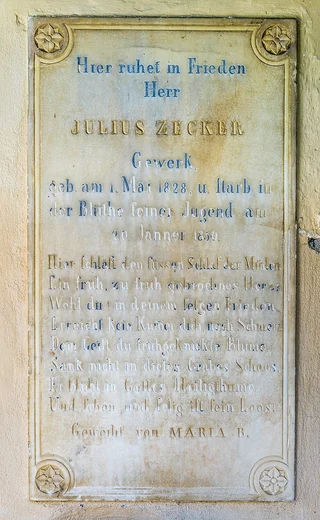 Hier ruhet in Frieden
Herr
JULIUS ZECKER
Gewerk
geb. am 1. Mai 1828. u. starb in
der Blüthe seiner Jugend am
Jänner
Hier schläft den süssen Schlaf der Müden
Ein früh, zu früh gebrochnes Herz
Wohl dir in deinem selgen Frieden,
Erreicht kein dich noch Schmerz
Dein Geist du frühgeknickte Blume
Sank nicht in dieses Grabes Schoos,
Er lebt in Gottes Heiligthume
Und schön und selig ist sein Loos.
Geweiht von MARIA B.